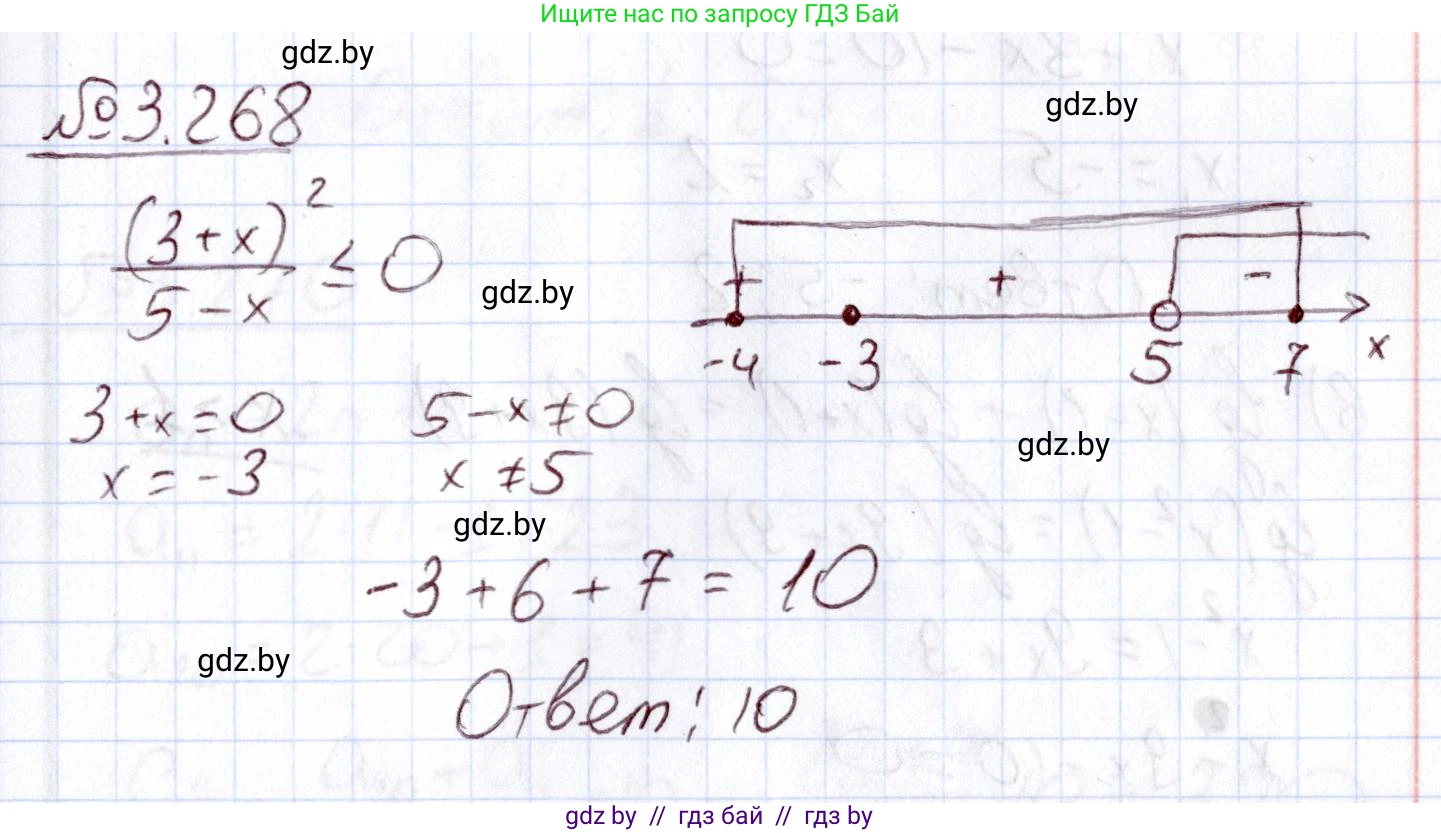 Ищите нас по запросу ГДЗ Бай
gdz.by
gdz.by
№3.268
(3+x)²
5-x
≤ 0
gdz.by
+ + -
-4 -3 5 7 x
3+x=0 5-x≠0
gdz.by
x=-3 x≠5
gdz.by
-3+6+7=10
gdz.by
Ответ: 10
gdz.by // гдз бай // гдз by